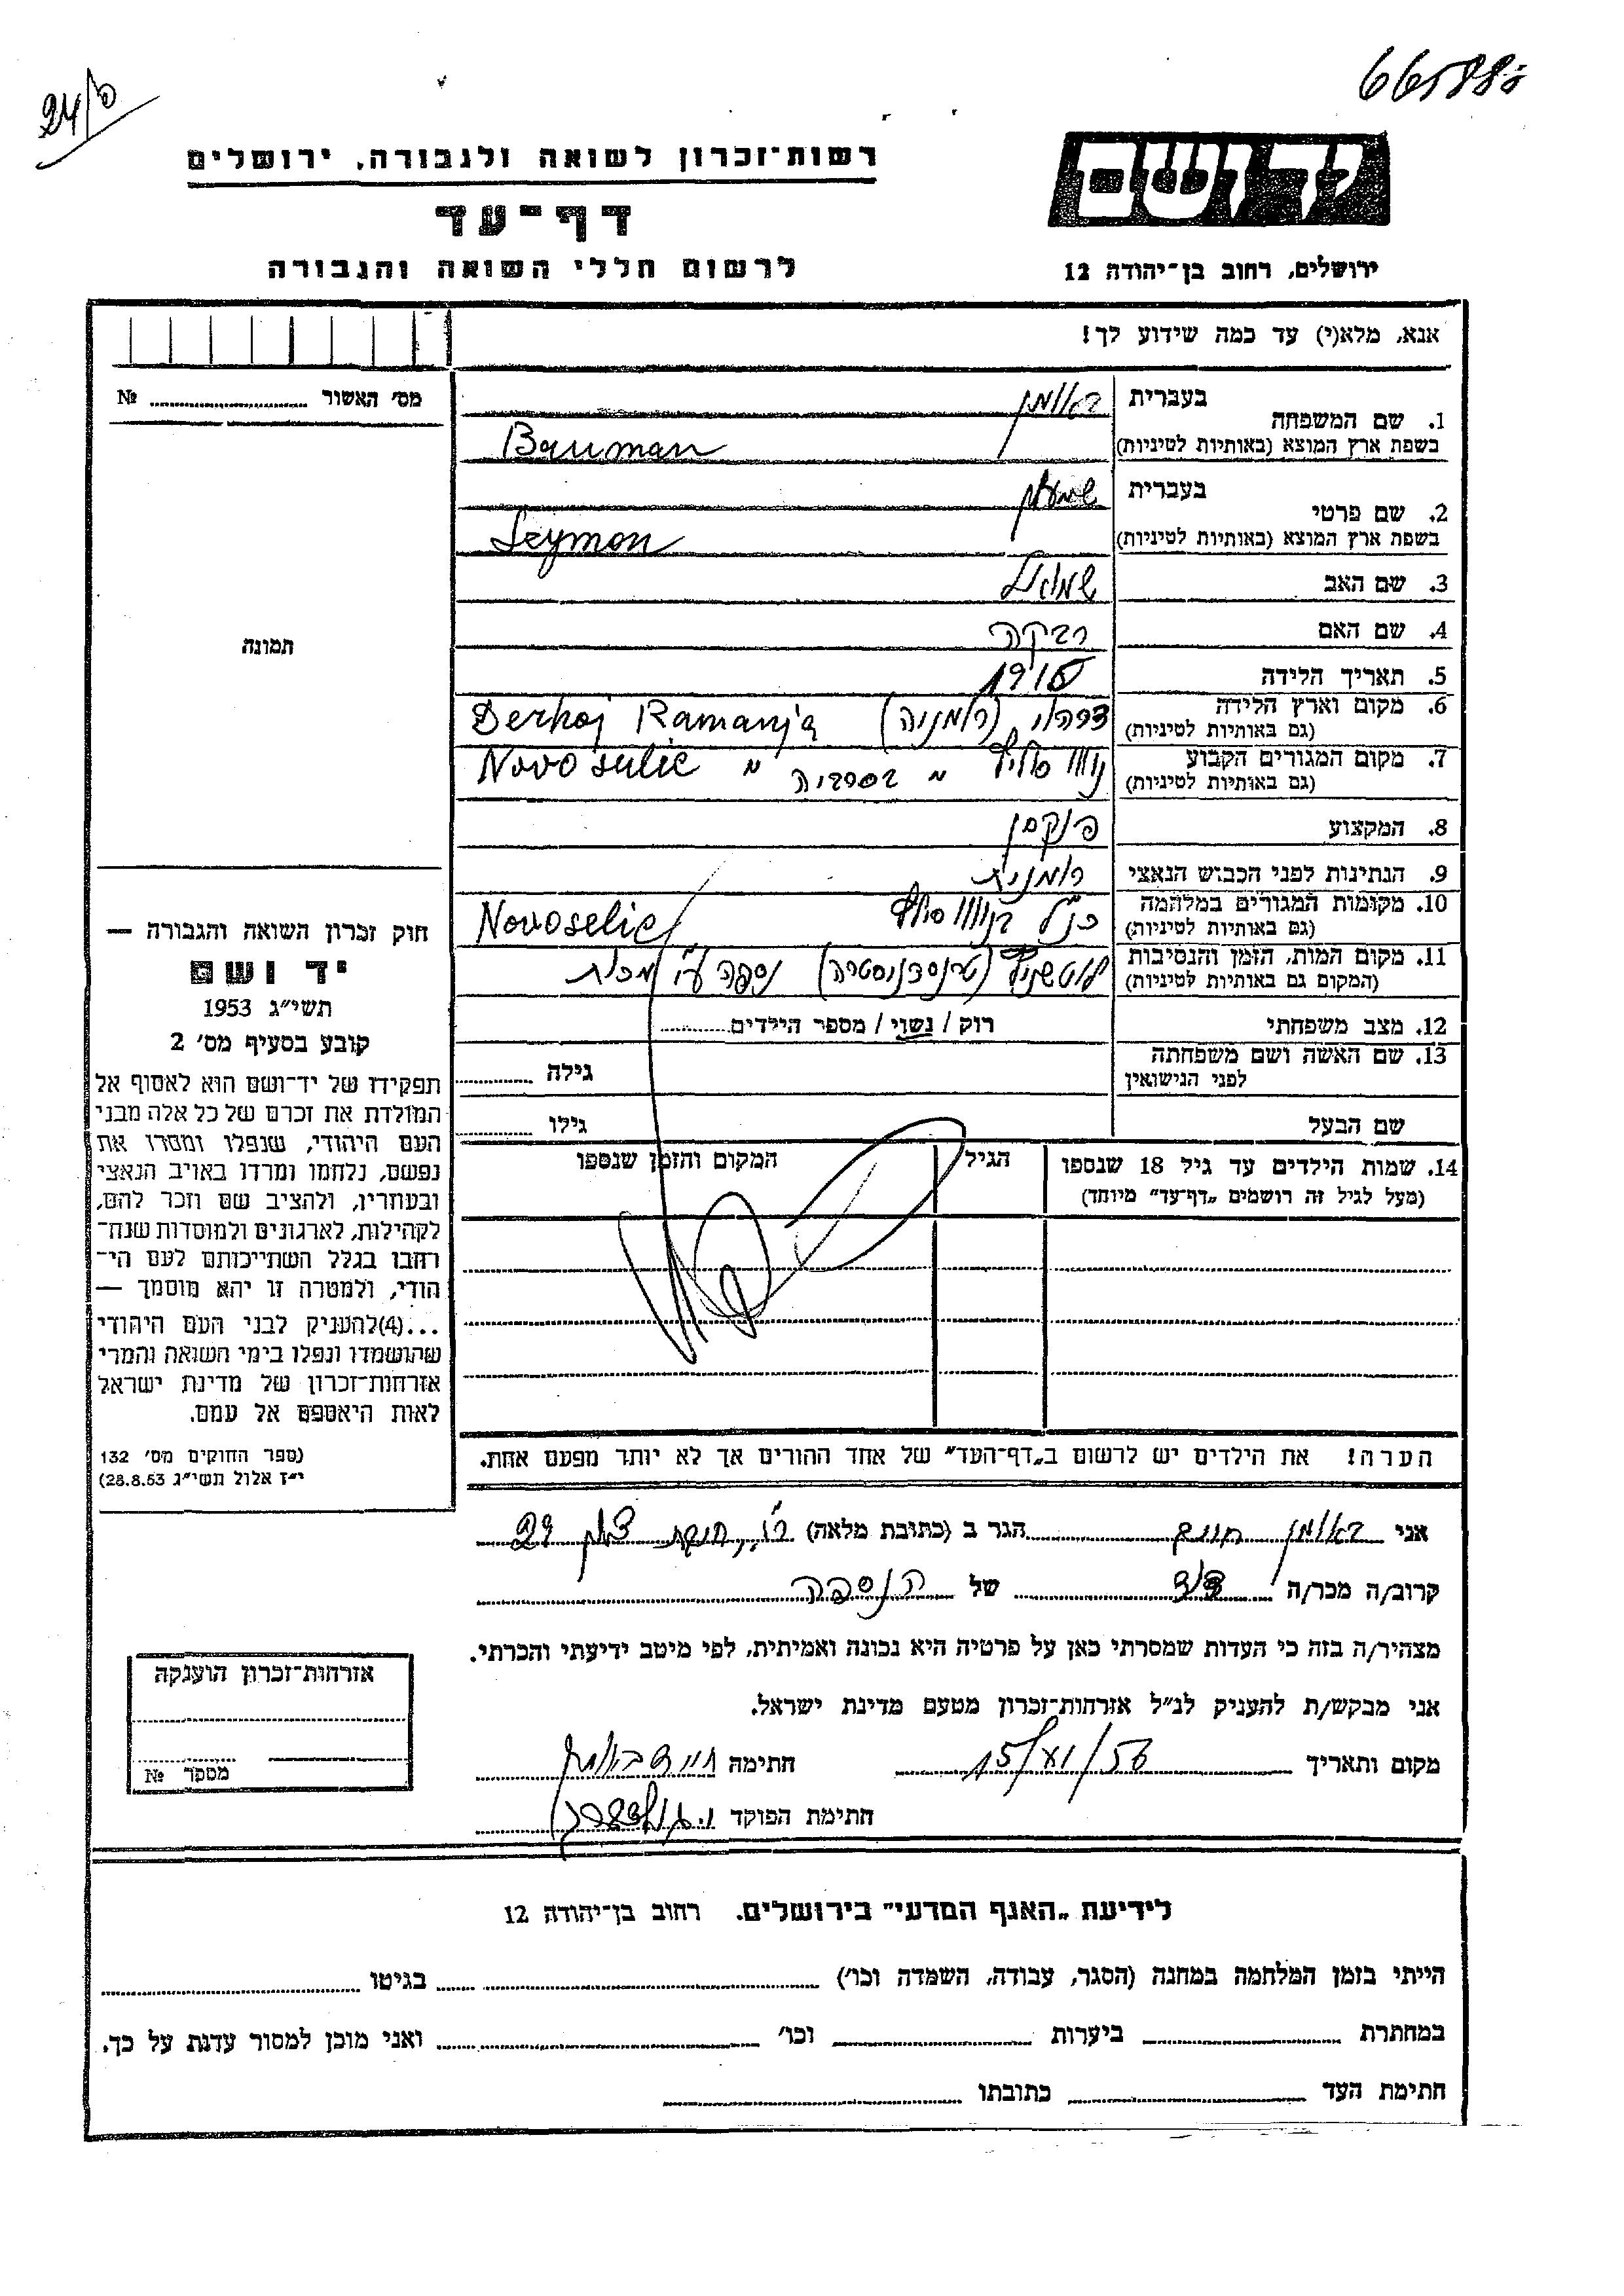 רשות־זכרון לשואה ולגבורה, ירושלים
דף־עד
לרשום חללי השואה והגבורה
יד ושם
ירושלים, רחוב בן־יהודה 12
אנא, מלא(י) עד כמה שידוע לך!
מס׳ האשור № 
תמונה
1. שם המשפחה בעברית באומן
בשפת ארץ המוצא (באותיות לטיניות) Bauman
2. שם פרטי בעברית שמעון
בשפת ארץ המוצא (באותיות לטיניות) Szymon
3. שם האב שמואל
4. שם האם רבקה
5. תאריך הלידה
6. מקום וארץ הלידה (רומניה) Derhoj Ramanja
(גם באותיות לטיניות)
7. מקום המגורים הקבוע נובוסליץ " בסרביה " Novoselic
(גם באותיות לטיניות)
8. המקצוע פנקסן
9. הנתינות לפני הכבוש הנאצי רומנית
10. מקומות המגורים במלחמה כנ״ל בנובוסליץ Novoselic
(גם באותיות לטיניות)
11. מקום המות, הזמן והנסיבות (טרנסדניסטריה) נספה ע״י מכות
(המקום גם באותיות לטיניות)
12. מצב משפחתי רוק / נשוי / מספר הילדים
13. שם האשה ושם משפחתה גילה
לפני הנישואין
שם הבעל גילו
14. שמות הילדים עד גיל 18 שנספו הגיל המקום והזמן שנספו
(מעל לגיל זה רושמים „דף־עד״ מיוחד)
הערה! את הילדים יש לרשום ב„דף־העד״ של אחד ההורים אך לא יותר מפעם אחת.
חוק זכרון השואה והגבורה —
יד ושם
תשי״ג 1953
קובע בסעיף מס׳ 2
תפקידו של יד־ושם הוא לאסוף אל
המולדת את זכרם של כל אלה מבני
העם היהודי, שנפלו ומסרו את
נפשם, נלחמו ומרדו באויב הנאצי
ובעוזריו, ולהציב שם וזכר להם,
לקהילות, לארגונים ולמוסדות שנח־
רבו בגלל השתייכותם לעם הי־
הודי, ולמטרה זו יהא מוסמך —
...(4)להעניק לבני העם היהודי
שהושמדו ונפלו בימי השואה והמרי
אזרחות־זכרון של מדינת ישראל
לאות היאספם אל עמם.
(ספר החוקים מס׳ 132
י״ז אלול תשי״ג 28.8.53)
אני באומן חיים הגר ב (כתובת מלאה)
קרוב/ה מכר/ה דוד של הנספה
מצהיר/ה בזה כי העדות שמסרתי כאן על פרטיה היא נכונה ואמיתית, לפי מיטב ידיעתי והכרתי.
אני מבקש/ת להעניק לנ״ל אזרחות־זכרון מטעם מדינת ישראל.
מקום ותאריך 15/VI/56 חתימה חיים באומן
חתימת הפוקד
אזרחות־זכרון הוענקה
מספר №
לידיעת „האגף המדעי״ בירושלים. רחוב בן־יהודה 12
הייתי בזמן המלחמה במחנה (הסגר, עבודה, השמדה וכו׳) בגיטו
במחתרת ביערות וכו׳ ואני מוכן למסור עדות על כך.
חתימת העד כתובתו